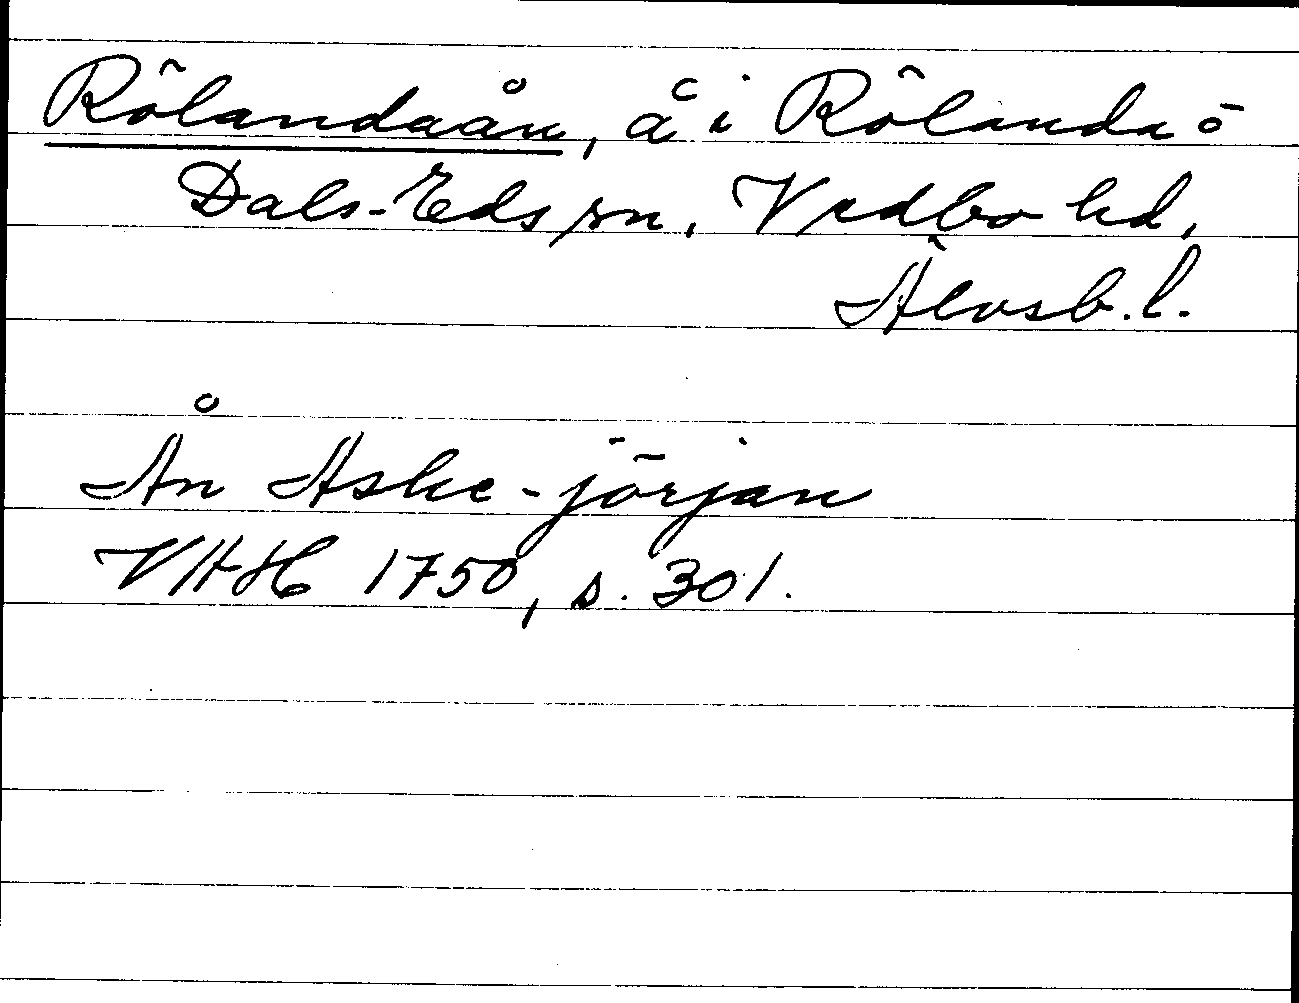 Rölandaån, å i Rölanda o
Dals-Eds snr, Vedbo hd,
Älvsb. l.
Ån Aske-jörjan
VHH 1750, s. 301.